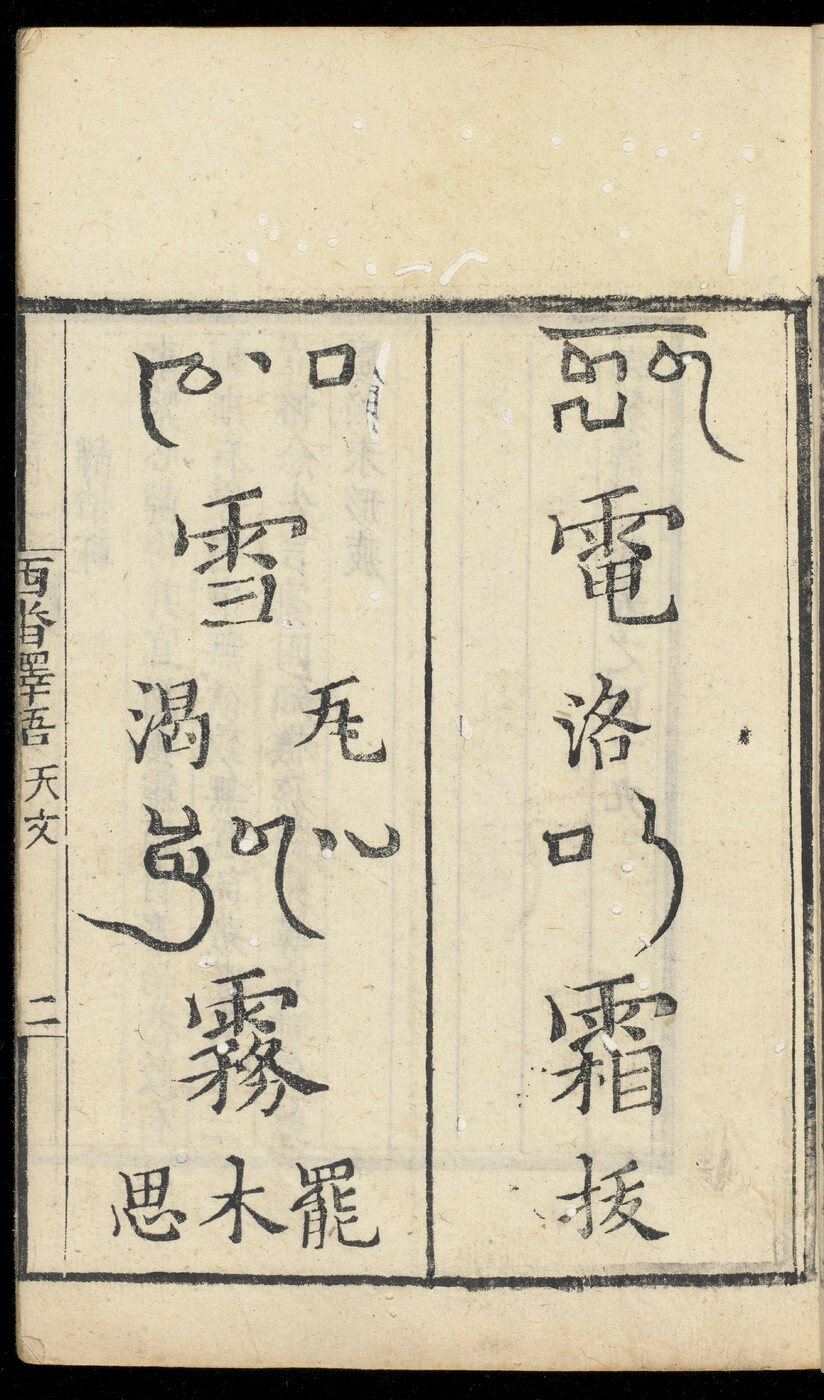 གློག
電
洛
བད
霜
拔
ཁ་བ
雪
渴瓦
སྨུག་པ
霧
思木罷
西番譯語 天文 二